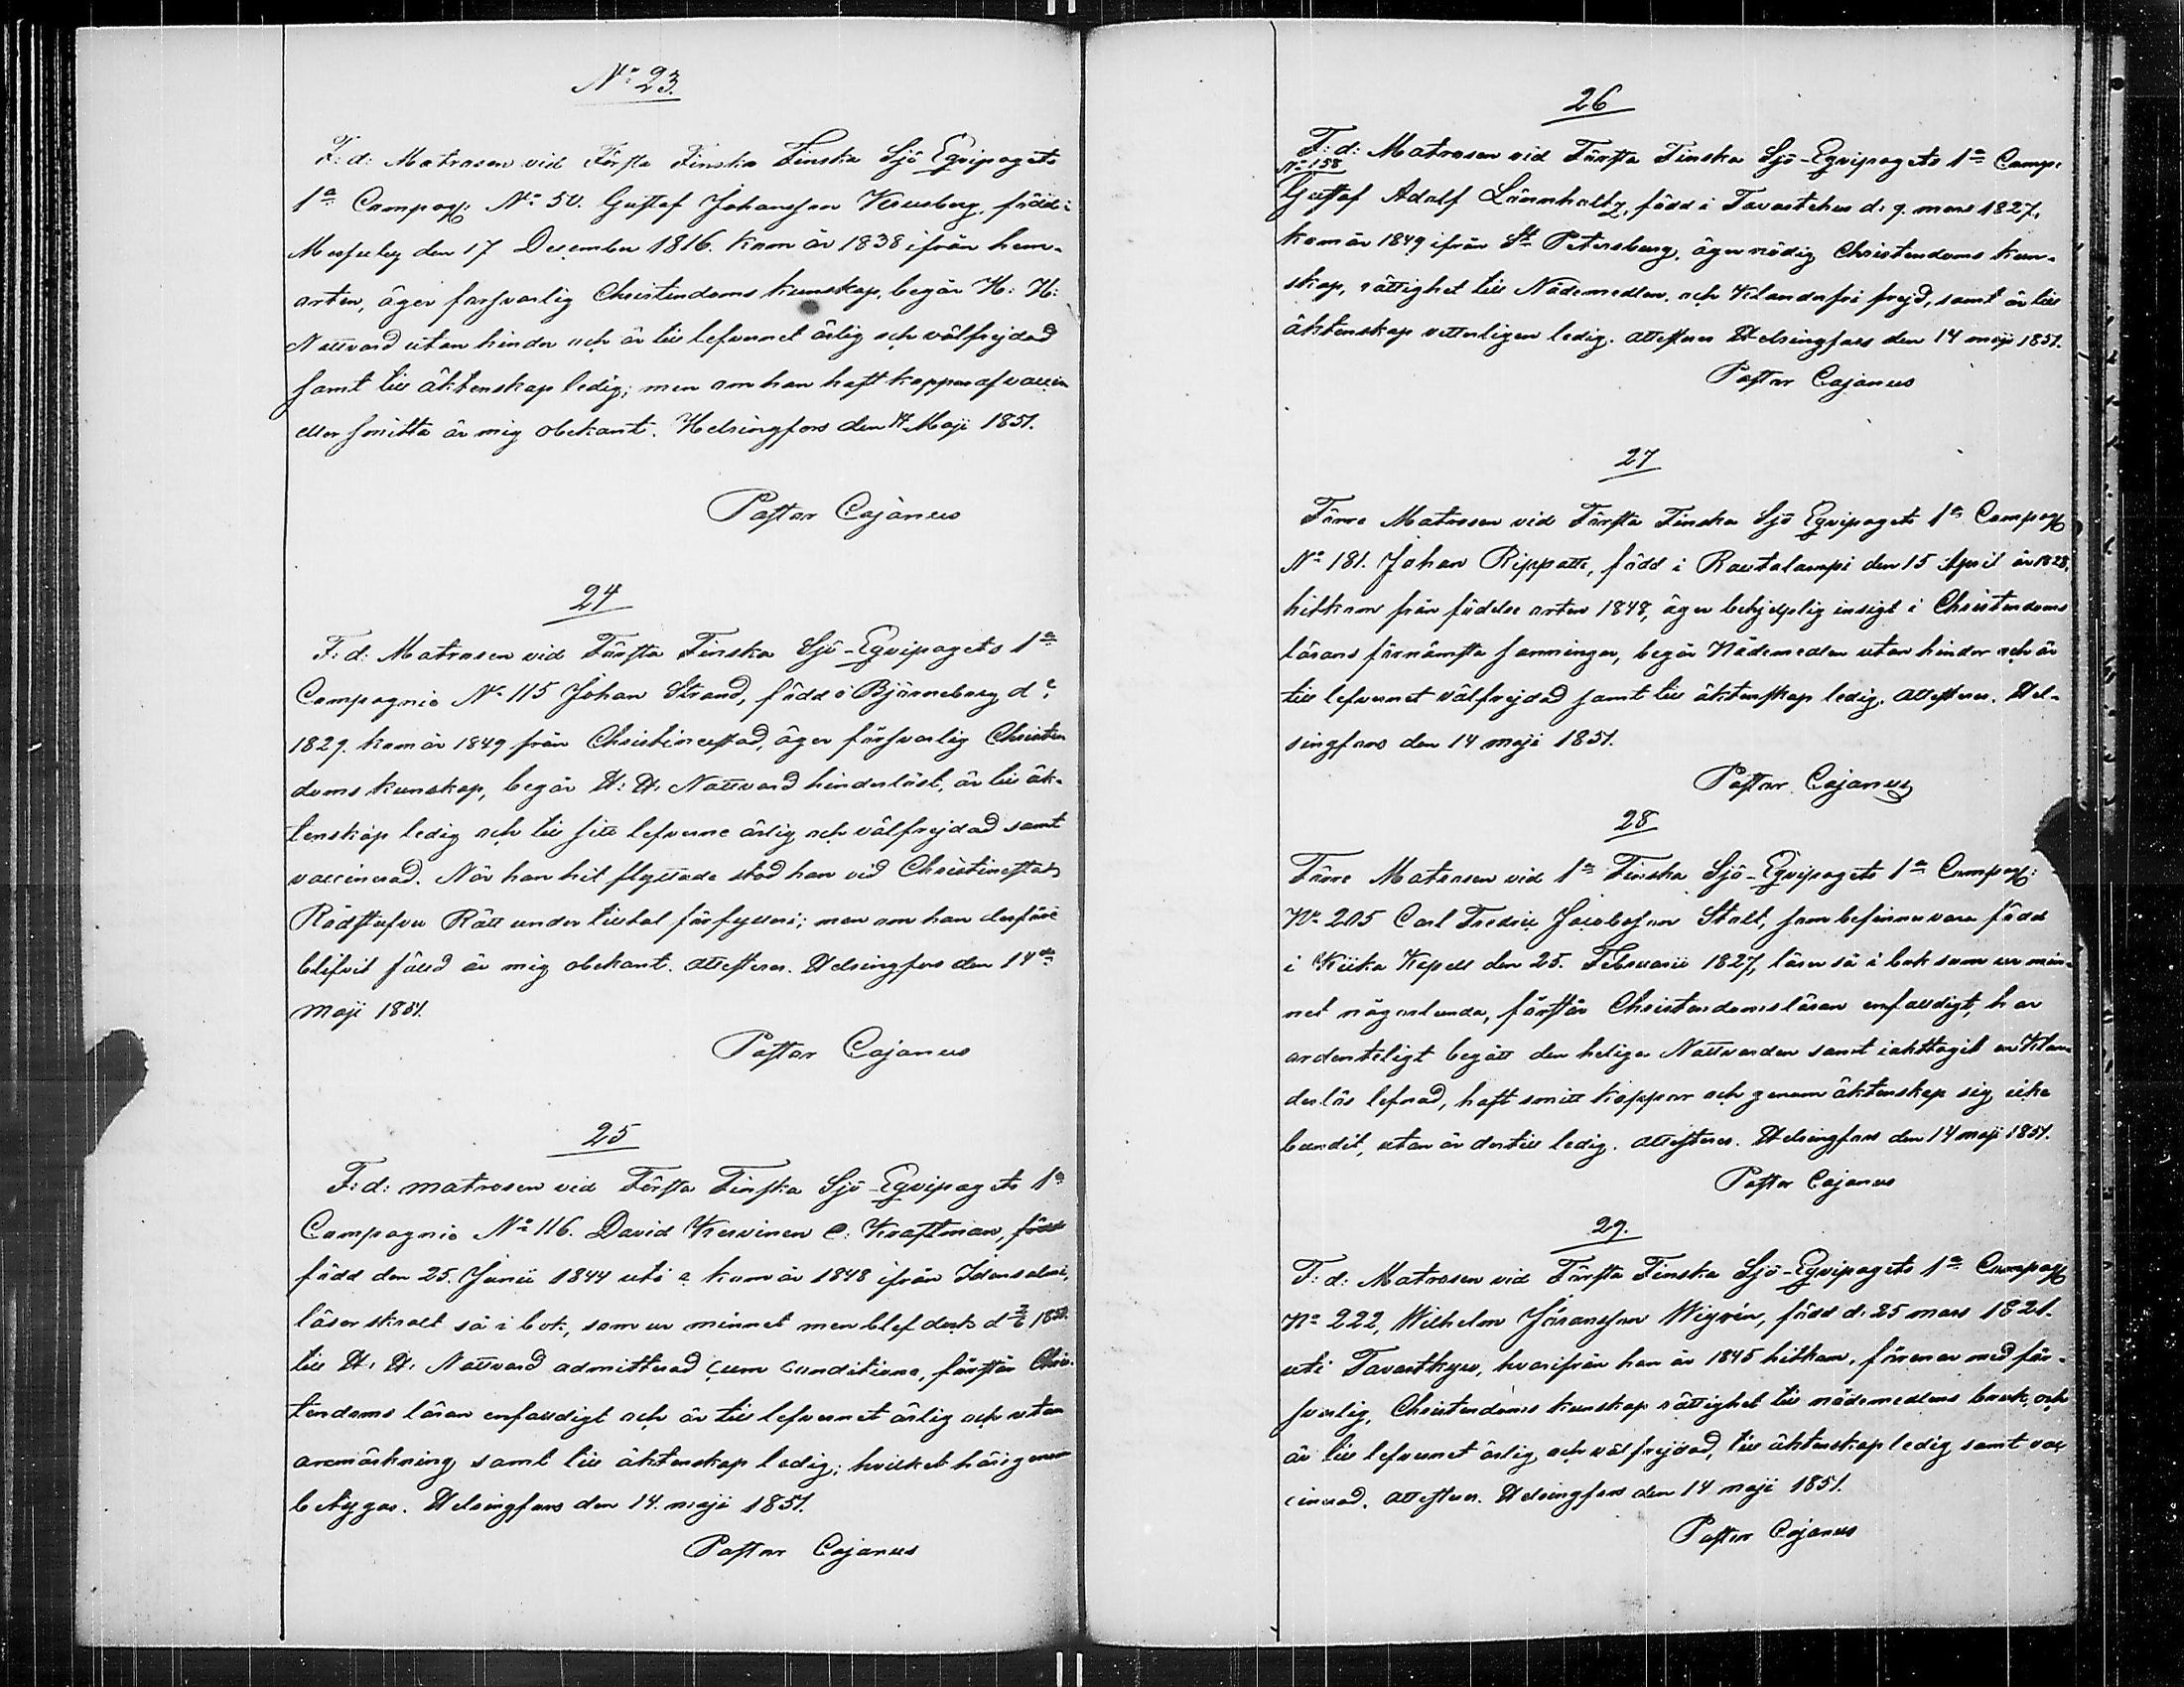 No 23.
F: d: Matrosen vid Första Finska Finska Sjö Eqvipagets
1a Campag: No 50. Gustaf Johansson Krusberg, född i
den 17 December 1816. kom år 1838 ifrån hem-
orten, äger försvarlig Christendoms kunskap, begår H: H:
Nattvard utan hinder och är till lefvernet ärlig och välfrejdad
samt till äktenskap ledig; men om han haft koppor af vaccin
eller smitta är mig obekant. Helsingfors den 14 Maji 1851.
Pastor Cajanus
24
F: d: Matrosen vid Första Finska Sjö-Eqvipagets 1a
Campagnie No 115 Johan Strand, född i Björneborg d:
1829. kom år 1849 från Christinestad, äger försvarlig Christen
doms kunskap, begår H: H: Nattvard hinderlöst, är till äk-
tenskap ledig och till sitt lefverne ärlig och välfrejdad samt
vaccinerad. När han hit flyttade stod han vid Christinestads
Rådstufvu Rätt under tilltal för fylleri; men om han derföre
blifvit fälld är mig obekant. Attesteras. Helsingfors den 14de
maji 1851.
Pastor Cajanus
25
F: d: matrosen vid Första Finska Sjö-Eqvipagets 1a
Campagnie No 116. David Kervinen e: Kraftman, född
född den 25. Junii 1844 uti o kom år 1848 ifrån Idensalmi,
läser skralt så i bok, som ur minnet men blef
till H: H: Nattvard admitterad cum conditione, förstår Chris-
tendoms läran enfaldigt och är till lefvernet ärlig och utan
anmärkning samt till äktenskap ledig; hvilket härigenom
betygas. Helsingfors den 14. maji 1851.
Pastor Cajanus
26
F: d: Matrosen vid Första Finska Sjö-Eqvipagets 1a Camp:
No 158
Gustaf Adolf Lönnholtz, född i Tavastehus d: 9. mars 1827,
kom år 1849 ifrån St Petersburg, äger nödig Christendoms kun-
skap, rättighet till Nådemedlen, och klanderfri frejd, samt är till
äktenskap vetterligen ledig. Attesteras Helsingfors den 14 maji 1851.
Pastor Cajanus
27
Förre Matrosen vid Första Finska Sjö Eqvipagets 1a Campag
No 181. Johan Rippatti, född i Rautalampi den 15 April år 1828,
hitkom från födelse orten 1848, äger behjelplig insigt i Christendoms
lärans förnämsta sanningar, begår Nådemedlen utan hinder och är
till lefvernet välfrejdad samt till äktenskap ledig. Attesteras. Hel-
singfors den 14 maji 1851.
Pastor Cajanus
28
Förre Matrosen vid 1a Finska Sjö-Eqvipagets 1a Campag:
No 205 Carl Fredric Jacobsson Stolt, som befinnes vara född
i Kiika Kapell den 25. Februarii 1827, läser så i bok som ur min-
net någorlunda, förstår Christendomsläran enfaldigt, har
ordenteligt begått den heliga Nattvarden samt iakttagit en klan-
derlös lefnad, haft smitt koppor och genom äktenskap sig icke
bundit, utan är dertill ledig. Attesteras. Helsingfors den 14 maji 1851.
Pastor Cajanus
29.
F: d: Matrosen vid Första Finska Sjö-Eqvipagets 1a Campag
No 222, Wilhelm Göransson Wigrén, född d: 25 mars 1821.
uti Tavastkyro, hvarifrån han år 1845 hitkom, förenar med för-
svarlig, Christendoms kunskap rättighet till nådemedlens bruk, och
är till lefvernet ärlig och välfrejdad, till äktenskap ledig samt vac
cinerad. Attesteras. Helsingfors den 14 maji 1851.
Pastor Cajanus